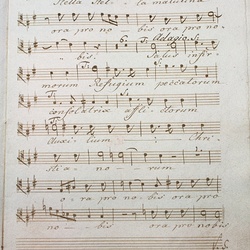 Stella Stel - la matutina
ora pro no - bis ora pro no -
Adagio. S:
bis. Salus infir -
morum Refugium peccatorum
T:
consolatrix afflictorum
Auxilium Chri -
stia - no - rum.
T:
o - ra pro no - bis ora pro
no - bis ora pro nobis
V. S.